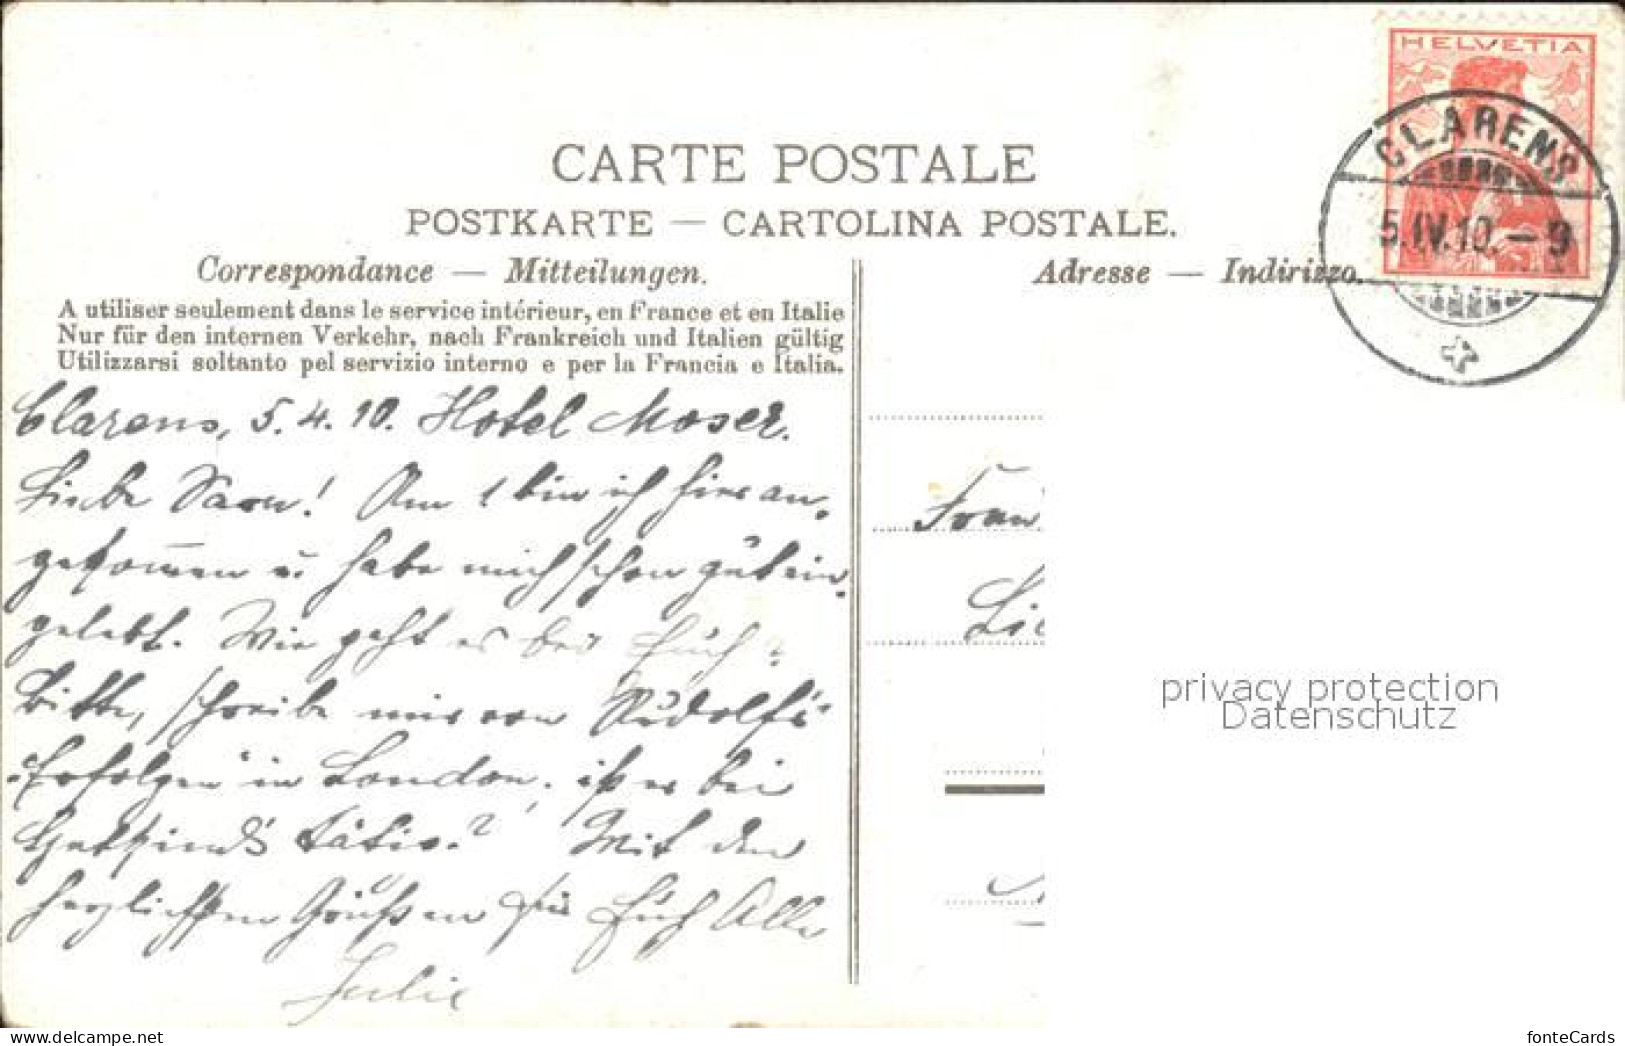 HELVETIA
CLARENS
5.IV.10.-9
CARTE POSTALE
POSTKARTE — CARTOLINA POSTALE.
Correspondance — Mitteilungen.
Adresse — Indirizzo.
A utiliser seulement dans le service intérieur, en France et en Italie
Nur für den internen Verkehr, nach Frankreich und Italien gültig
Utilizzarsi soltanto pel servizio interno e per la Francia e Italia.
Clarens, 5. 4. 10. Hotel Moser.
Liebe! Am 1 bin ich hier an-
gekommen u. habe mich schon gut ein-
gelebt. Wie geht es bei Euch?
Bitte, schreibe mir von Rudolfs
Erfolgen in London, ist er bei
Mit den
herzlichsten Grüßen für Euch Alle
Julie
Frau
privacy protection
Datenschutz
delcampe.net
fonteCards